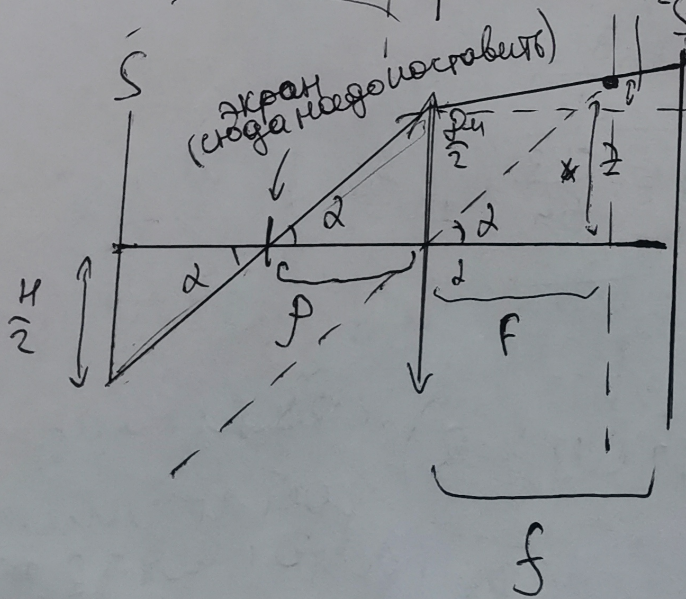 S
экран
(сюда надо поставить)
α
α
α
H
2
2
ρ
F
Z
f